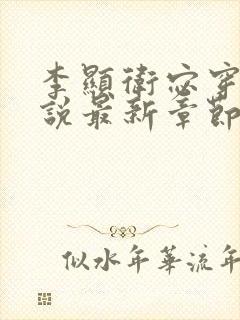 李顯衛宓穿
說最新章節
似水年華流年